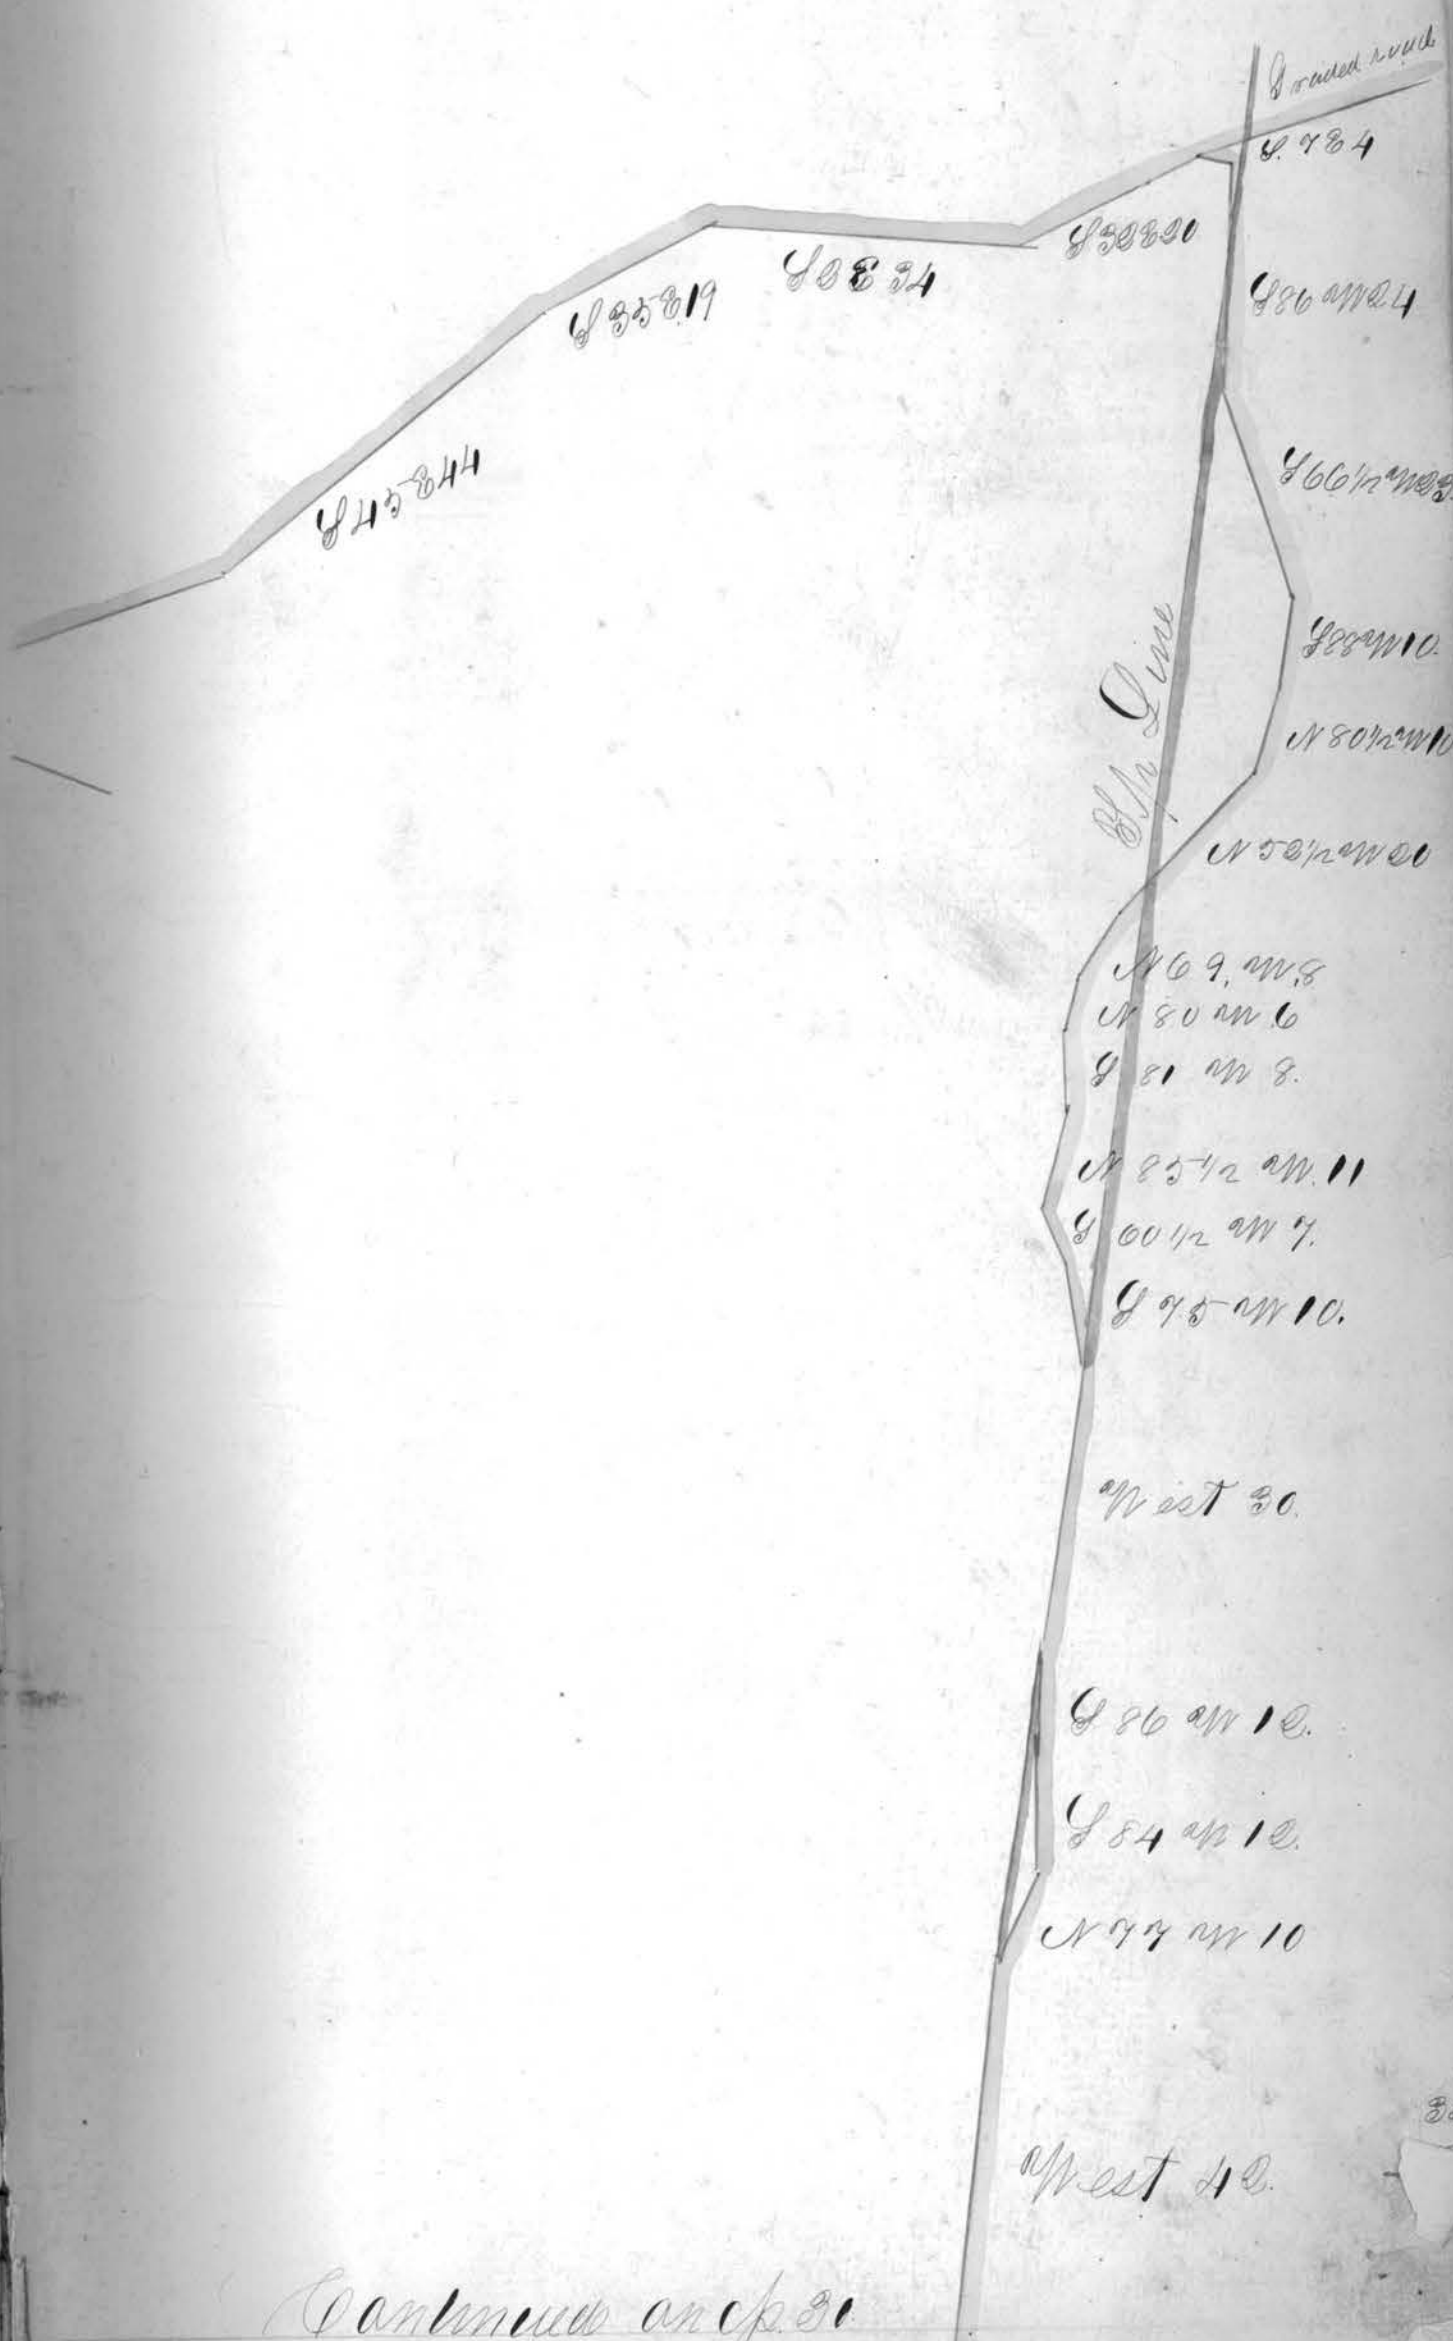 Graded road
S. 7 E 4
S 32 E 20
S 2 E 34
S 35 E 19
S 45 E 44
S 86 W 24
S 66 1/2 W 23
S 88 W 10.
N 80 1/2 W 10
Line
N 52 1/2 W 20
N 69. W. 8
N 80 W 6
S 81 W 8.
N 85 1/2 W. 11
S 60 1/2 W 7.
S 75 W 10.
West 30.
S 86 W 12.
S 84 W 12.
N 77 W 10
West 42.
Continued on p. 31